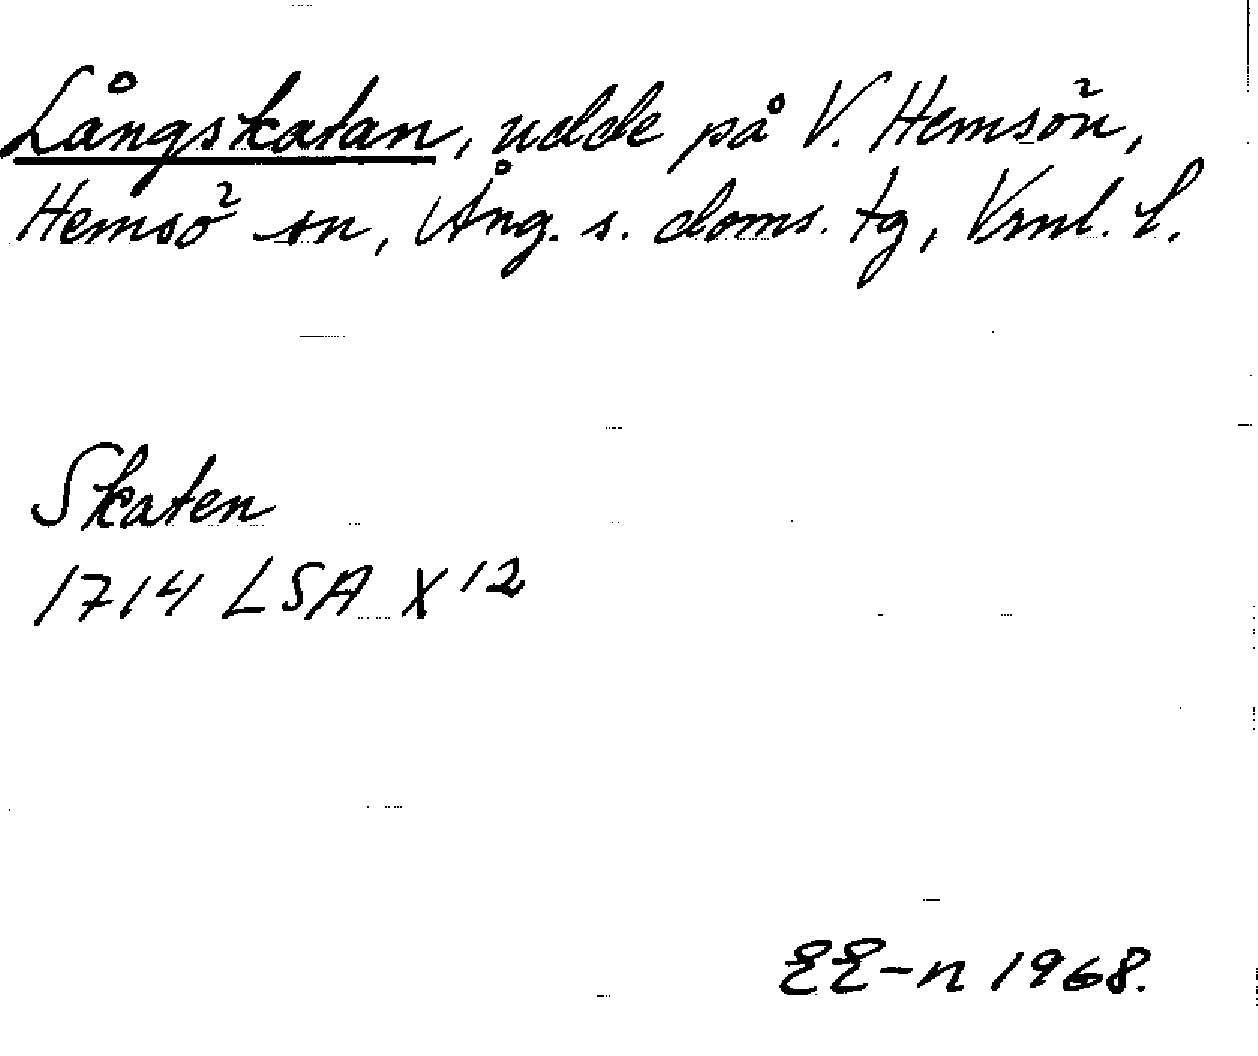 Långskatan, udde på V. Hemsön,
Hemsö sn, Ång. s. doms. tg, Vrnl. l.
Skaten
1714 LSA X 12
EE-n 1968.